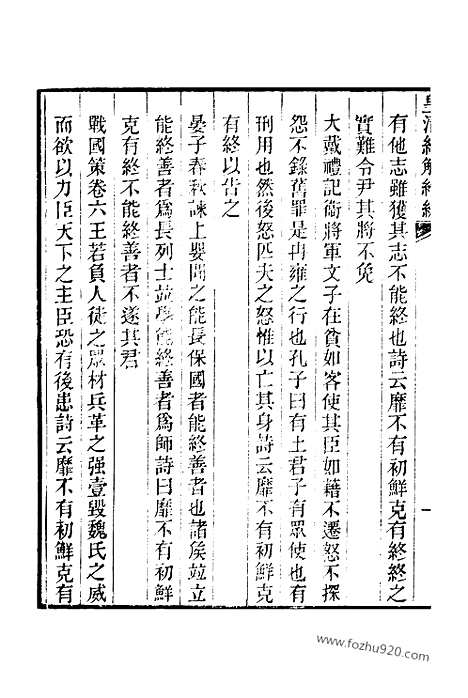 皇清經解續編
有他志雖獲其志不能終也詩云靡不有初鮮克有終終之
實難令尹其將不免
大戴禮記衞將軍文子在貧如客使其臣如藉不遷怒不探
怨不錄舊罪是冉雍之行也孔子曰有土君子有眾使也有
刑用也然後怒匹夫之怒惟以亡其身詩云靡不有初鮮克
有終以告之
晏子春秋諫上嬰聞之能長保國者能終善者也諸矦竝立
能終善者爲長列士竝學能終善者爲師詩曰靡不有初鮮
克有終不能終善者不遂其君
戰國策卷六王若負人徒之眾材兵革之强壹毀魏氏之威
而欲以力臣天下之主臣恐有後患詩云靡不有初鮮克有
www.fozhu920.com